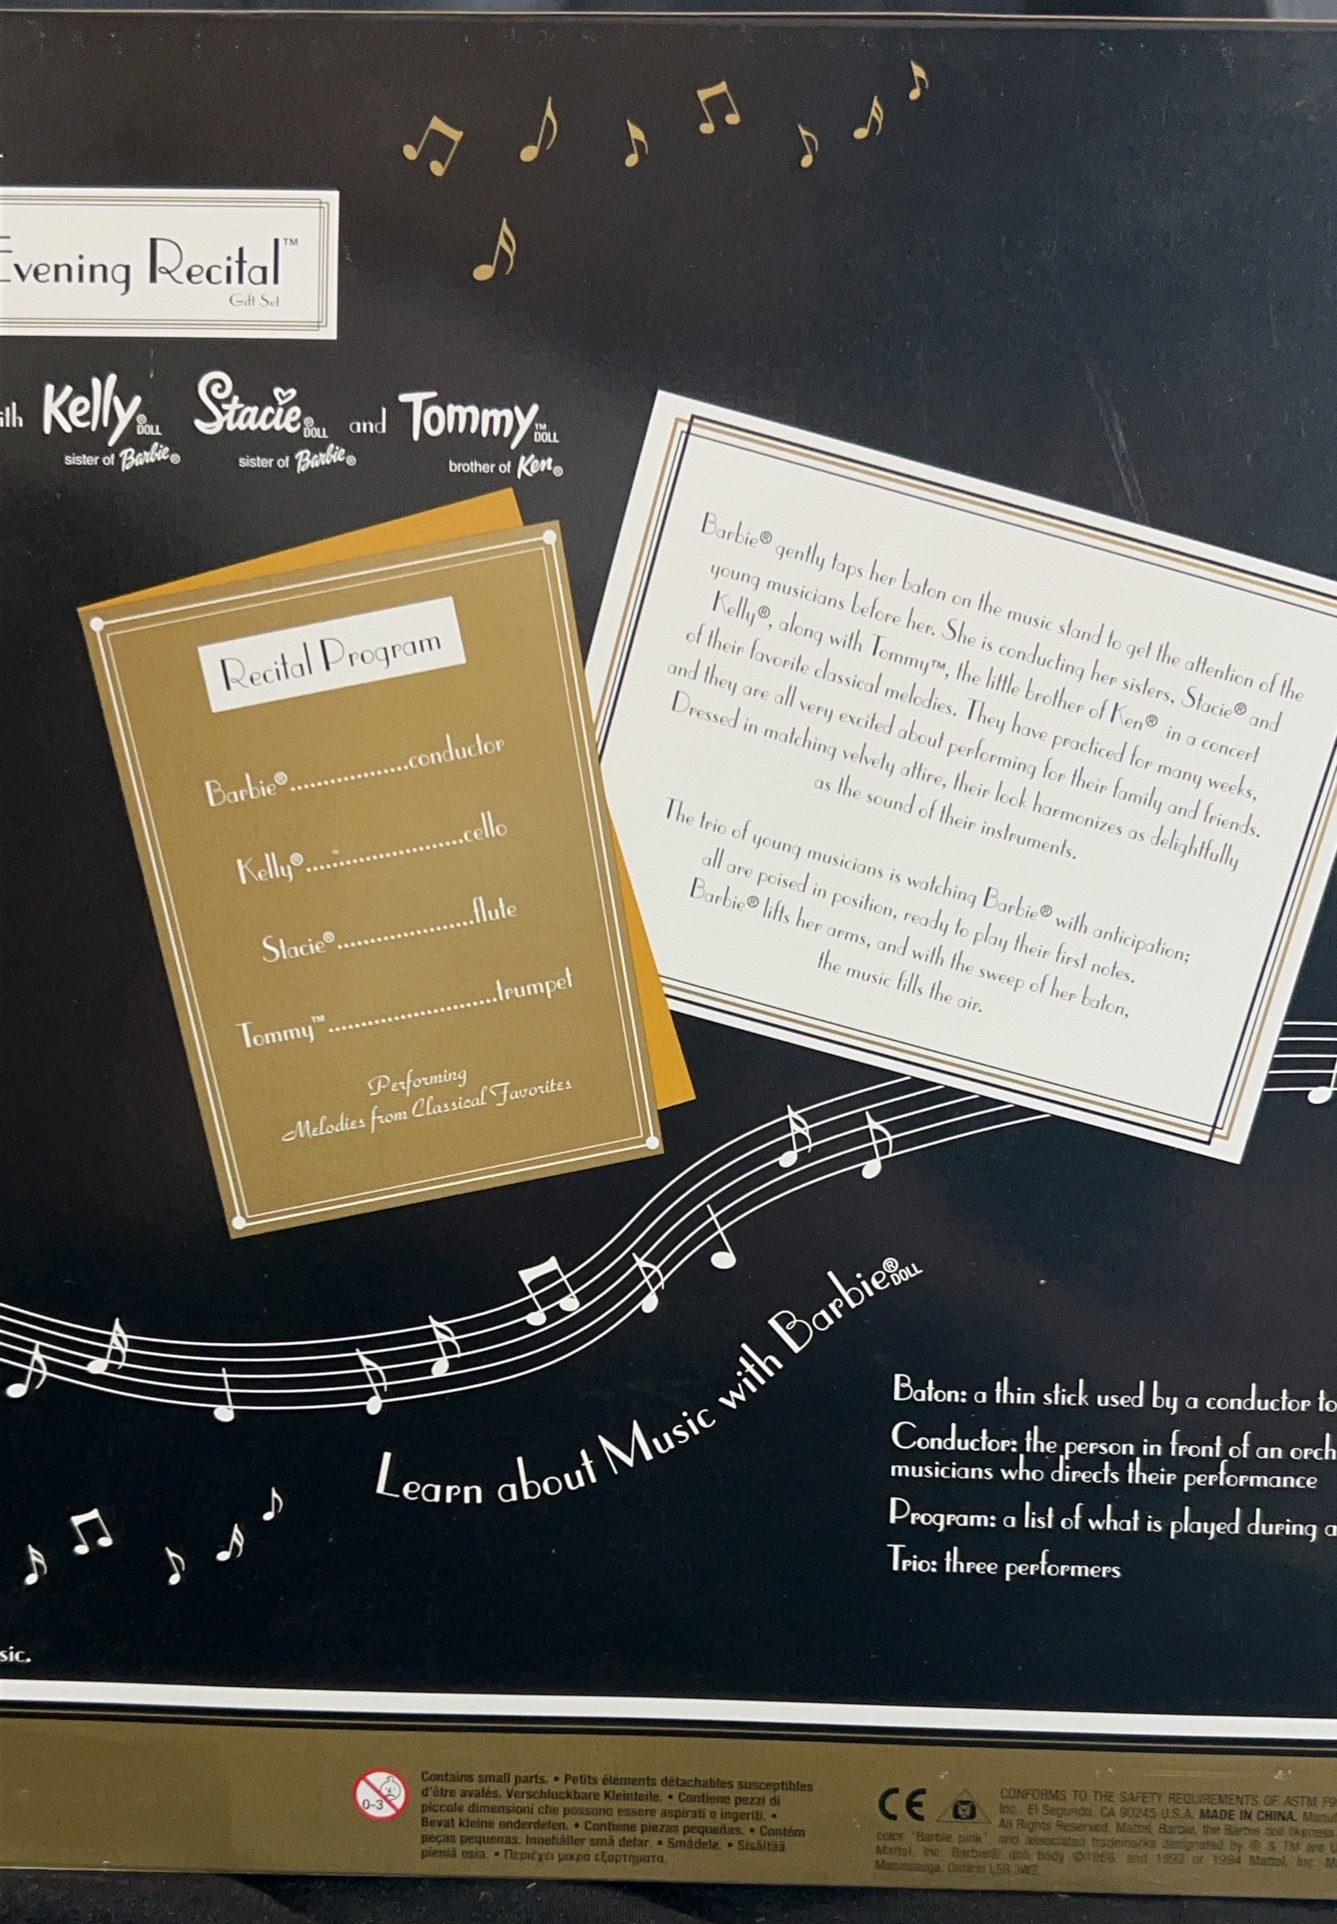 Evening Recital™
Gift Set
ith Kelly® DOLL Stacie® DOLL and Tommy™ DOLL
sister of Barbie® sister of Barbie® brother of Ken®
Recital Program
Barbie®..................conductor
Kelly®.........................cello
Stacie®......................flute
Tommy™...........................trumpet
Performing
Melodies from Classical Favorites
Barbie® gently taps her baton on the music stand to get the attention of the
young musicians before her. She is conducting her sisters, Stacie® and
Kelly®, along with Tommy™, the little brother of Ken® in a concert
of their favorite classical melodies. They have practiced for many weeks,
and they are all very excited about performing for their family and friends.
Dressed in matching velvety attire, their look harmonizes as delightfully
as the sound of their instruments.
The trio of young musicians is watching Barbie® with anticipation;
all are poised in position, ready to play their first notes.
Barbie® lifts her arms, and with the sweep of her baton,
the music fills the air.
Learn about Music with Barbie® DOLL
Baton: a thin stick used by a conductor to
Conductor: the person in front of an orch
musicians who directs their performance
Program: a list of what is played during a
Trio: three performers
sic.
0-3
Contains small parts. • Petits éléments détachables susceptibles
d'être avalés. Verschluckbare Kleinteile. • Contiene pezzi di
piccole dimensioni che possono essere aspirati o ingeriti. •
Bevat kleine onderdelen. • Contiene piezas pequeñas. • Contém
peças pequenas. Innehåller små delar. • Smådele. • Sisältää
pieniä osia. • Περιέχει μικρά εξαρτήματα.
CE
CONFORMS TO THE SAFETY REQUIREMENTS OF ASTM F9
Inc., El Segundo, CA 90245 U.S.A. MADE IN CHINA.
All Rights Reserved. Mattel, Barbie, the Barbie doll likeness
color "Barbie pink" and associated trademarks designated by ® & TM are
Mattel, Inc. Barbie® doll body ©1966, and 1993 or 1994 Mattel, Inc.
Mississauga, Ontario L5R 3W2.